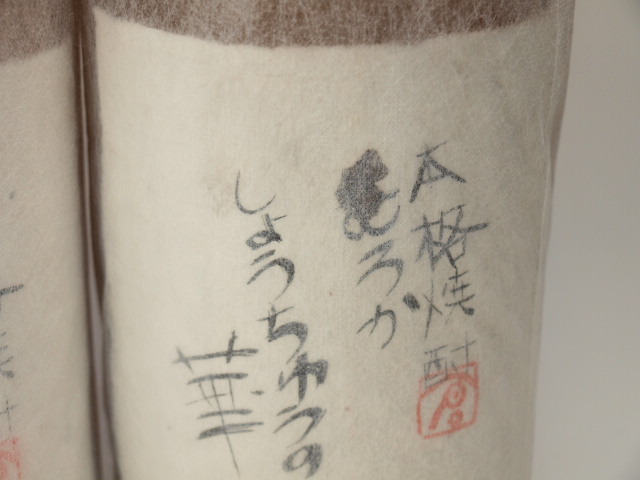 本格焼酎
むろか
しょうちゅうの
華